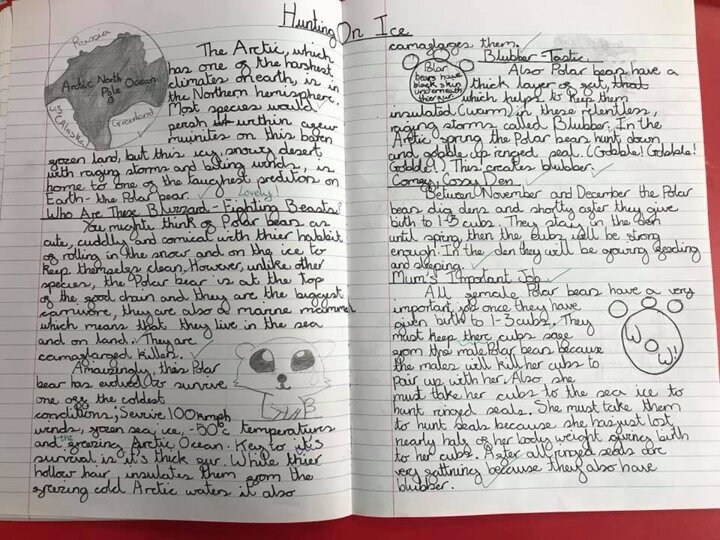 Hunting On Ice
Russia
Arctic North
Pole Ocean
US (Alaska)
Greenland
The Arctic, which
has one of the harshest
climates on earth, is in
the Northern hemisphere.
Most species would
persh within
muinites on this baren
frozen land, but this icy, snowy desert
with raging storms and biting winds, is
home to one of the toughest preditors on
Earth - the Polar bear.
Lovely!
Who Are These Blizzard - Fighting Beasts?
You mighte think of Polar bears as
cute, cuddly and comical with thier habbit
of rolling in the snow and on the ice to
keep themseles clean. However, unlike other
species, the Polar bear is at the top
of the food chain and they are the biggest
carnivore, they are also a marine mammel
which means that they live in the sea
and on land. They are
camaflarged killers.
Amazingly, this Polar
bear has evolved to survive
one off the coldest
conditions; Servire 100kmph
winds, frozen sea ice, -50°c temperatures
and the freezing Arctic Ocean. Key to it's
survival is it's thick fur. White thier
hollow hair insulates them from the
freezing cold Arctic waters it also
camaflarges them.
Blubber-Tastic
Polar
bears have
black skin
underneath
their fur
Also Polar bears have a
thick layer of fat, that
which helps to keep them
insulated (warm) in these relentless,
raging storms called Blubber. In the
Arctic spring the Polar bears hunt down
and gobble up ringed seal. (Gobble! Gobble!
Gobble!). This creates blubber.
Comfey, Cossy Den
Between November and December the Polar
bears dig dens and shortly after they give
birth to 1-3 cubs. They stay in the den
until spring, then the cubs will be strong
enough. In the den they will be growing feeding
and sleeping.
Mum's Important Job
All female Polar bears have a very
important job once they have
given birth to 1-3 cubs. They
must keep there cubs safe
from the male Polar bears because
the males will kill her cubs to
pair up with her. Also she
must take her cubs to the sea ice to
hunt ringed seals. She must take them
to hunt seals because she has just lost
nearly half of her body weight giving birth
to her cubs. After all ringed seals are
very fattning because they also have
blubber.